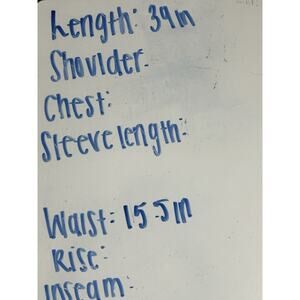 Length: 39in
Shoulder:
Chest:
Sleeve length:
Waist: 15.5in
Rise:
Inseam: